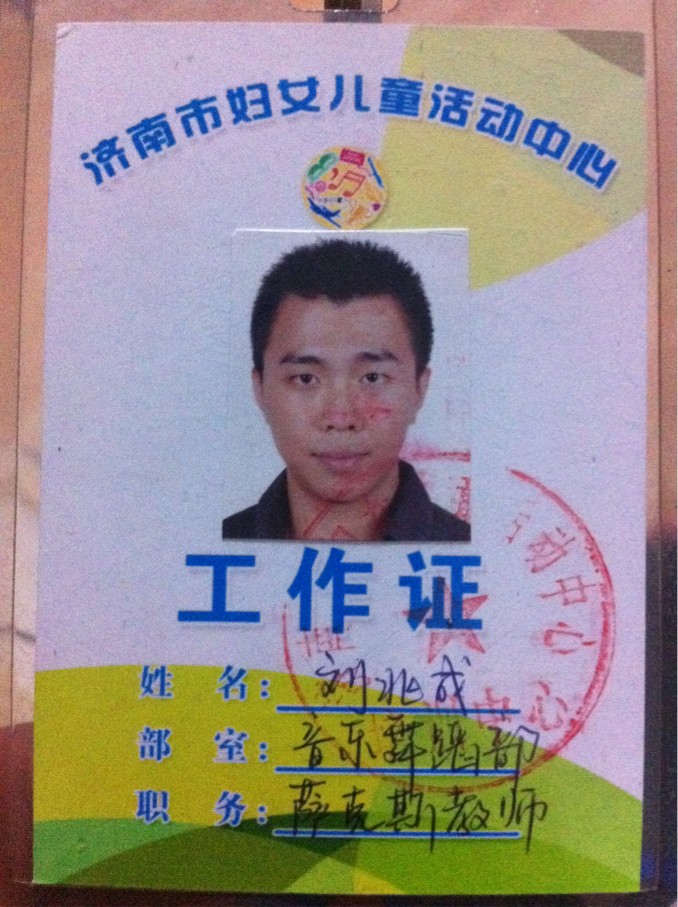 济南市妇女儿童活动中心
工作证
姓 名：刘兆成
部 室：音乐舞蹈部
职 务：萨克斯教师
动中心
中心